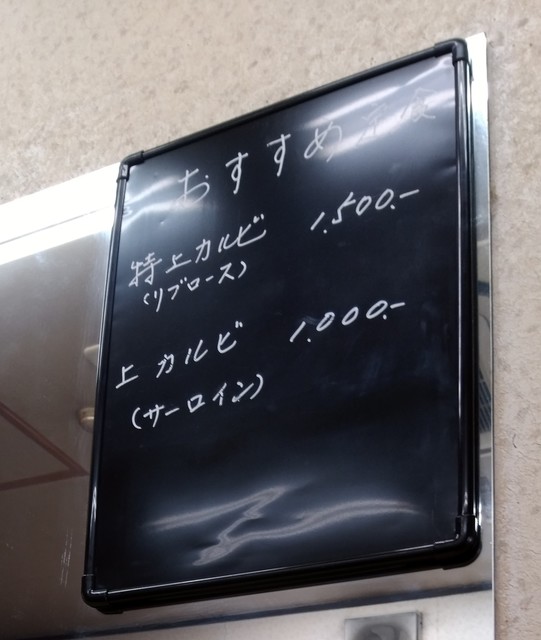 おすすめ定食
特上カルビ 1.500.-
(リブロース)
上カルビ 1.000.-
(サーロイン)